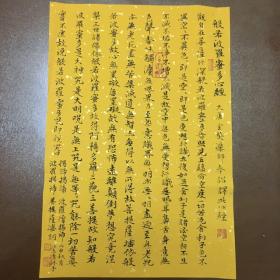 般若波羅蜜多心經 大唐三藏法師 奉詔譯
觀自在菩薩行深般若波羅蜜多時照見五蘊皆空度一切苦厄舍利子色不
異空空不異色色即是空空即是色受想行識亦復如是舍利子是諸法空相不生
不滅不垢不淨不增不減是故空中無色無受想行識無眼耳鼻舌身意無色
聲香味觸法無眼界乃至無意識界無無明亦無無明盡乃至無老死
亦無老死盡無苦集滅道無智亦無得以無所得故菩提薩埵依般
若波羅蜜多故心無罣礙無罣礙故無有恐怖遠離顛倒夢想究竟涅
槃三世諸佛依般若波羅蜜多故得阿耨多羅三藐三菩提故知般若
波羅蜜多是大神咒是大明咒是無上咒是無等等咒能除一切苦真
實不虛故說般若波羅蜜多咒即說咒曰 揭諦揭諦 波羅揭諦
波羅僧揭諦 菩提薩婆訶